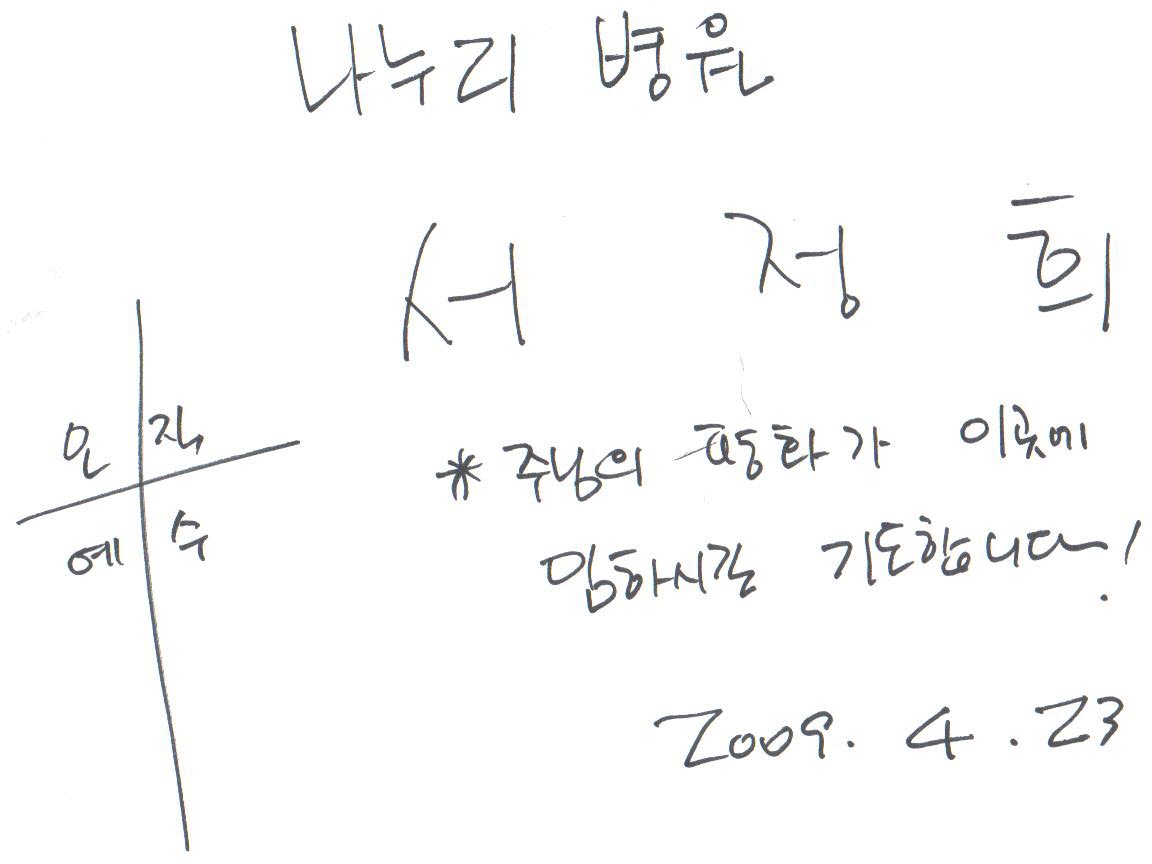 나누리 병원
서 정 희
오 직
예 수
* 주님의 평화가 이곳에
임하시길 기도합니다!
2009. 4. 23